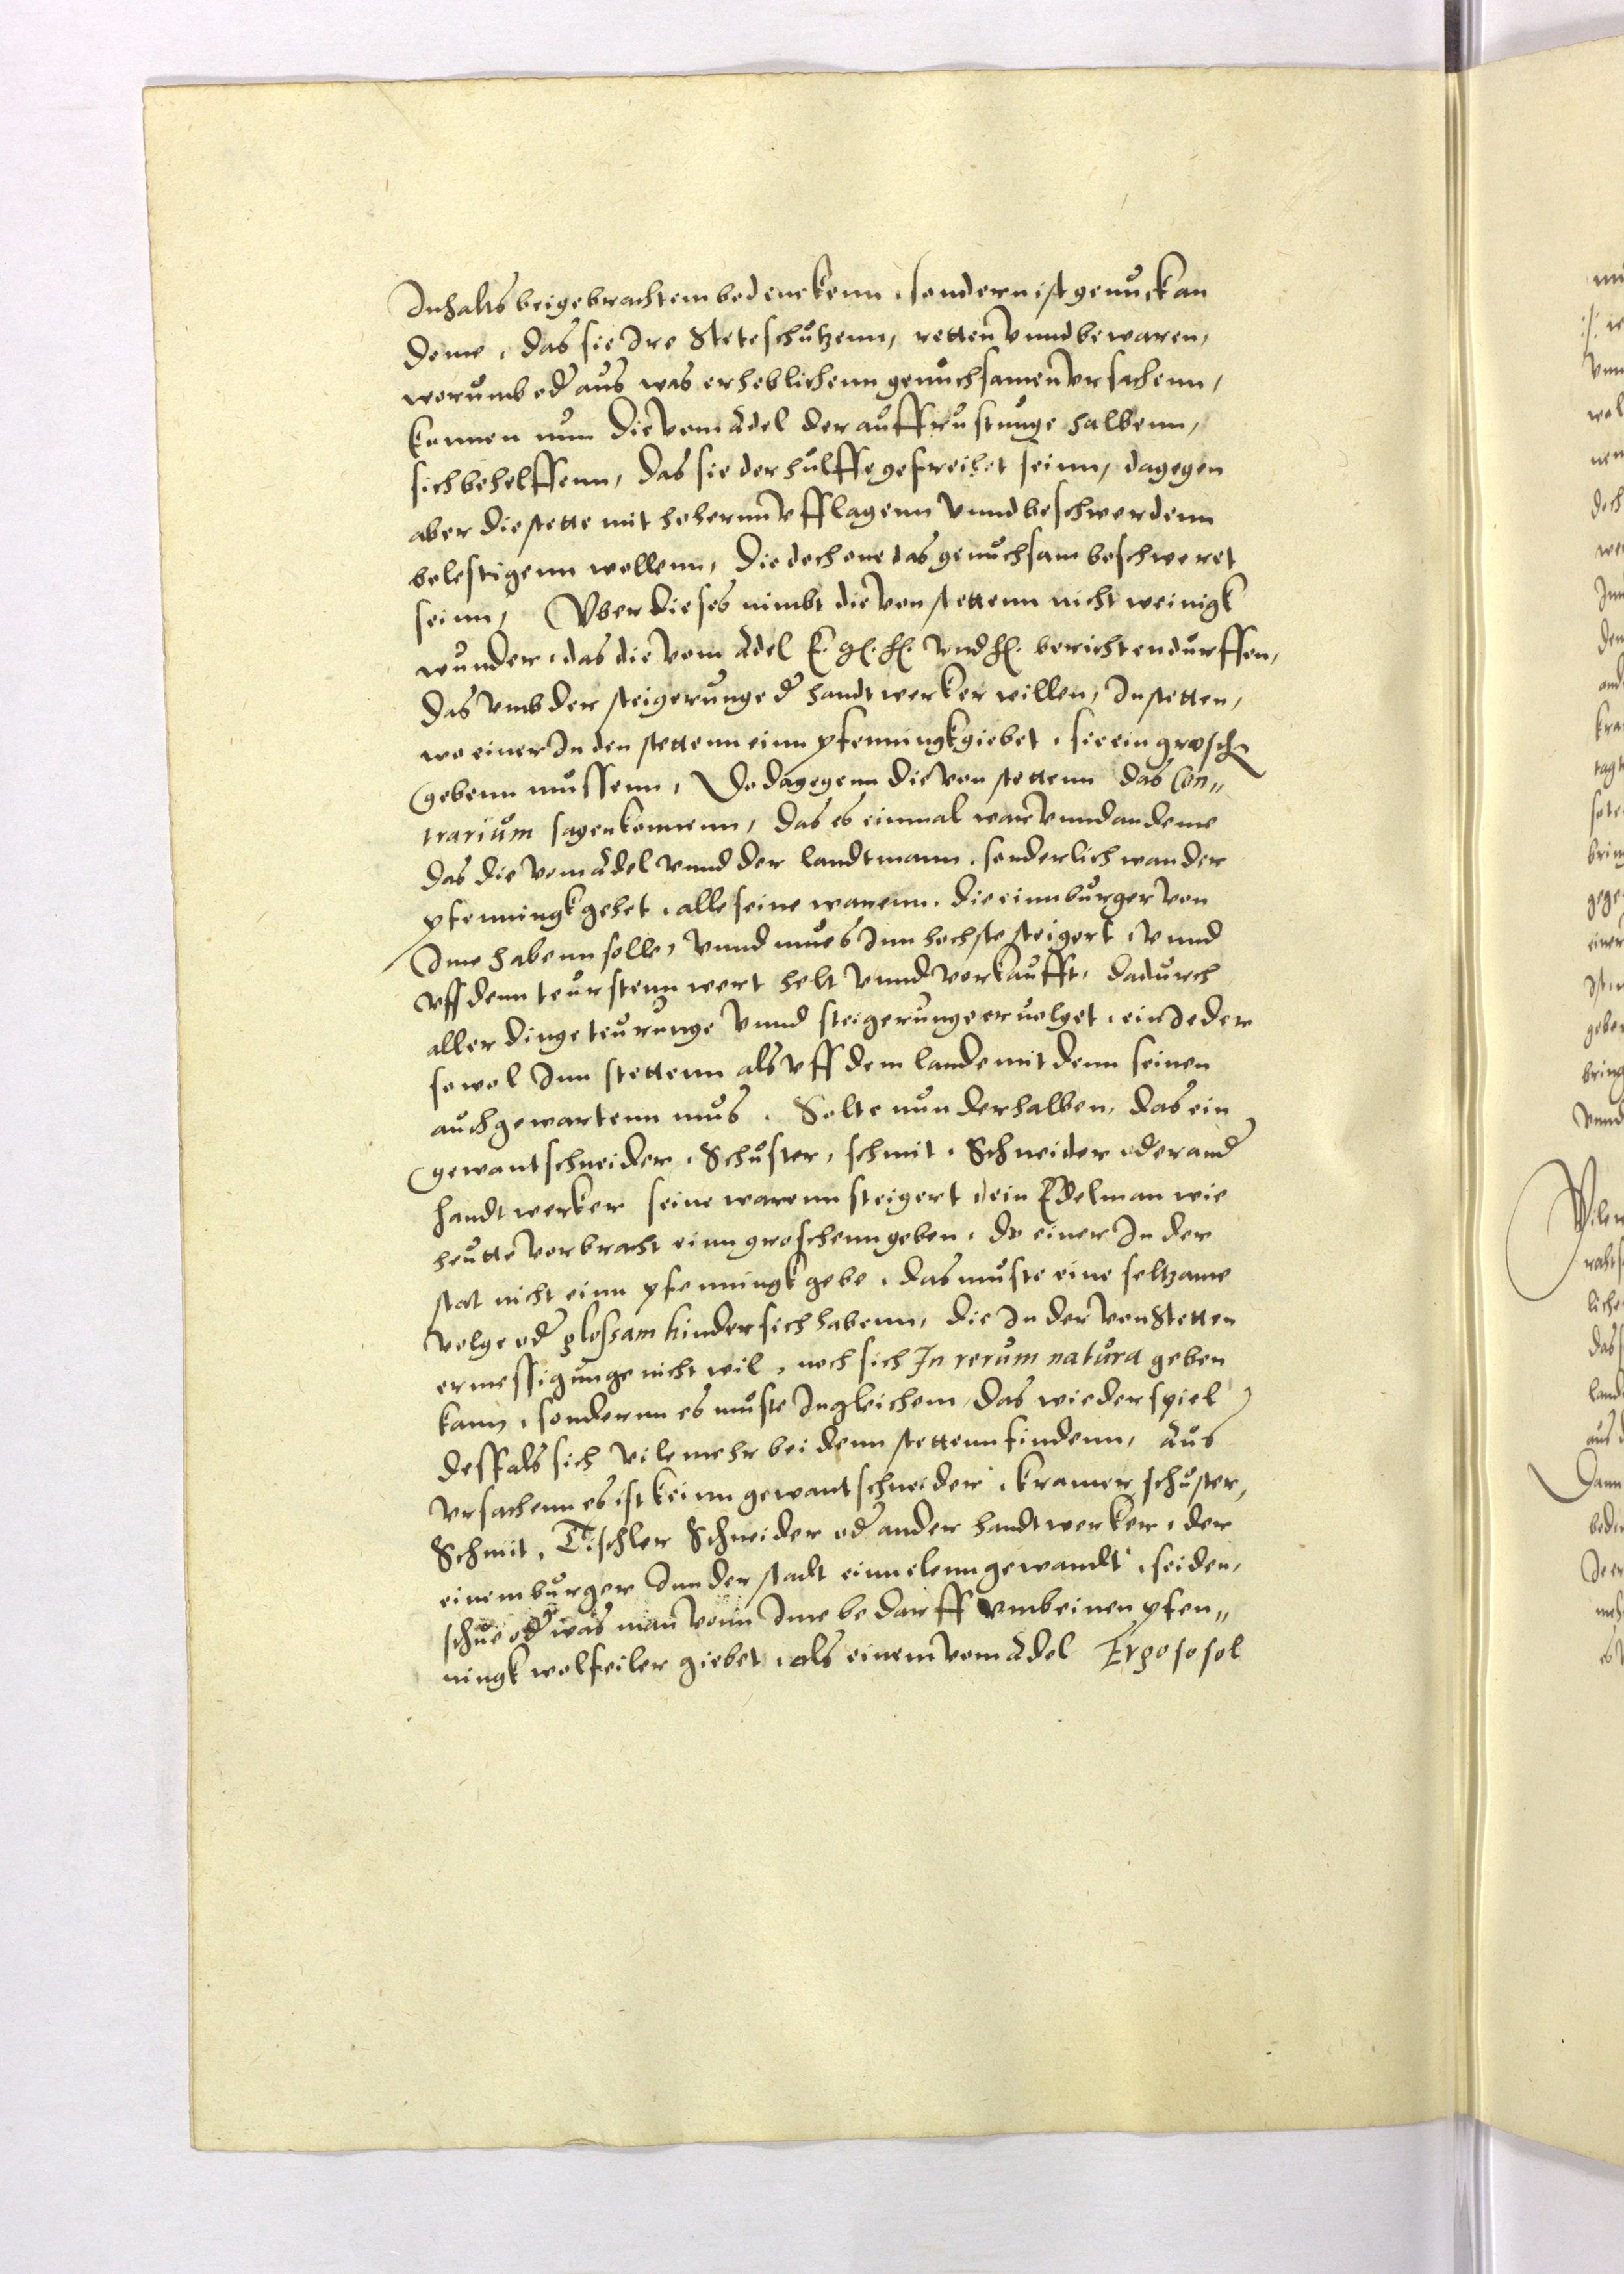 Inhalts beigebrachtem bedenckenn, sondern ist genuck an
deme, das sie Ire Stete schutzenn, retten vnnd bewaren,
worumb od aus was erheblichenn genuchsamen Ursachenn,
konnen nun die vom Adel der auffrustunge halbenn,
sich behelffenn, das sie der hulffe gefreihet seinn, dagegen
aber die stette mit hohernn Ufflagenn vnnd beschwerdenn
belestigenn wollenn, die doch one das genuchsam beschweret
seinn, Vber dieses nimbt die von stettenn nicht weinigk
wunder, das die vom Adel E. g. h. vnd h. berichten durffen,
das vmb der steigerunge d handtwerker willen, In stetten,
wo einer In den stettenn einn pfenningk giebet, sie ein grosch
gebenn mussenn, Do dagegenn die von stettenn das Con„
trarium sagen konnenn, das es einmal war vnnd an deme
das die vom Adel vnnd der landtmann, sonderlich wan der
pfenningk gehet, alle seine warenn, die einn burger von
Ime habenn solle, vnnd mues Inn hochste steigert, vnnd
vff denn teurstenn wert helt vnnd verkaufft, dadurch
aller dinge teurunge vnnd steigerunge ervolget, ein Jeder
so wol Inn stettenn als vff dem lande mit denn seinen
auch gewartenn mus, Solte nun derhalben, das ein
gewantschneider, Schuster, schmit, Schneider oder and
handtwerker seine warenn steigert, ein Edelman wie
heutte vorbracht einn groschenn geben, do einer In der
stat nicht einn pfenningk gebe, das muste eine seltzame
volge od glossam hinder sich habenn, die In der von Stetten
ermessigunge nicht wil, noch sich In rerum natura geben
kann, sondernn es muste Ingleichem das wiederspiel
desfals sich vilemehr bei denn stettenn findenn, Aus
vrsachenn es ist keinn gewantschneider, kramer schuster,
Schmit, Tischler Schneider od ander handtwerker, der
einem burger Inn der stadt einn elenn gewandt, seiden,
schue od was man vonn Ime bedarff vmb einen pfen„
ningk wolfeiler giebet, als einem vom Adel Ergo so sol